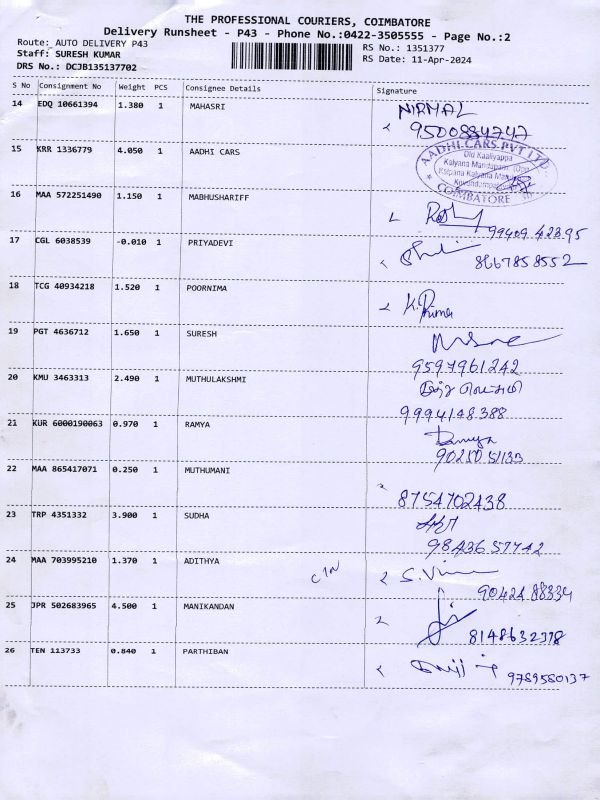 THE PROFESSIONAL COURIERS, COIMBATORE
Delivery Runsheet - P43 - Phone No.:0422-3505555 - Page No.:2
Route: AUTO DELIVERY P43 RS No.: 1351377
Staff: SURESH KUMAR RS Date: 11-Apr-2024
DRS No.: DCJB135137702
S No Consignment No Weight PCS Consignee Details Signature
14 EDQ 10661394 1.380 1 MAHASRI NIRMAL
9500884747
15 KRR 1336779 4.050 1 AADHI CARS AADHI CARS PVT LTD.
Old Kaaliyappa
Kalyana Mandapam (Opp
Kalpana Kalyana
COIMBATORE
16 MAA 572251490 1.150 1 MABHUSHARIFF
99409 42395
17 CGL 6038539 -0.010 1 PRIYADEVI
8667858552
18 TCG 40934218 1.520 1 POORNIMA
19 PGT 4636712 1.650 1 SURESH
9597961242
20 KMU 3463313 2.490 1 MUTHULAKSHMI
9994148388
21 KUR 6000190063 0.970 1 RAMYA Ramya
90250 51133
22 MAA 865417071 0.250 1 MUTHUMANI
8754702438
23 TRP 4351332 3.900 1 SUDHA
98436 57742
24 MAA 703995210 1.370 1 ADITHYA
90424 88334
25 JPR 502683965 4.500 1 MANIKANDAN
8148632378
26 TEN 113733 0.840 1 PARTHIBAN
9789580137